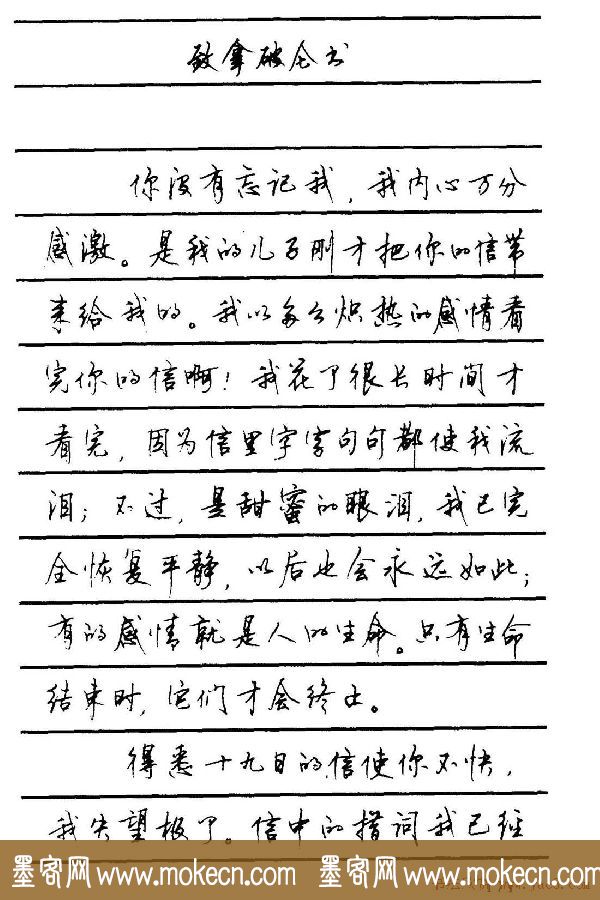 致拿破仑书
你没有忘记我，我内心万分
感激。是我的儿子刚才把你的信带
来给我的。我以多么炽热的感情看
完你的信啊！我花了很长时间才
看完，因为信里字字句句都使我流
泪；不过，是甜蜜的眼泪，我已完
全恢复平静，以后也会永远如此；
有的感情就是人的生命。只有生命
结束时，它们才会终止。
得悉十九日的信使你不快，
我失望极了。信中的措词我已经
墨客网 www.mokecn.com 墨客网 www.mokecn.com